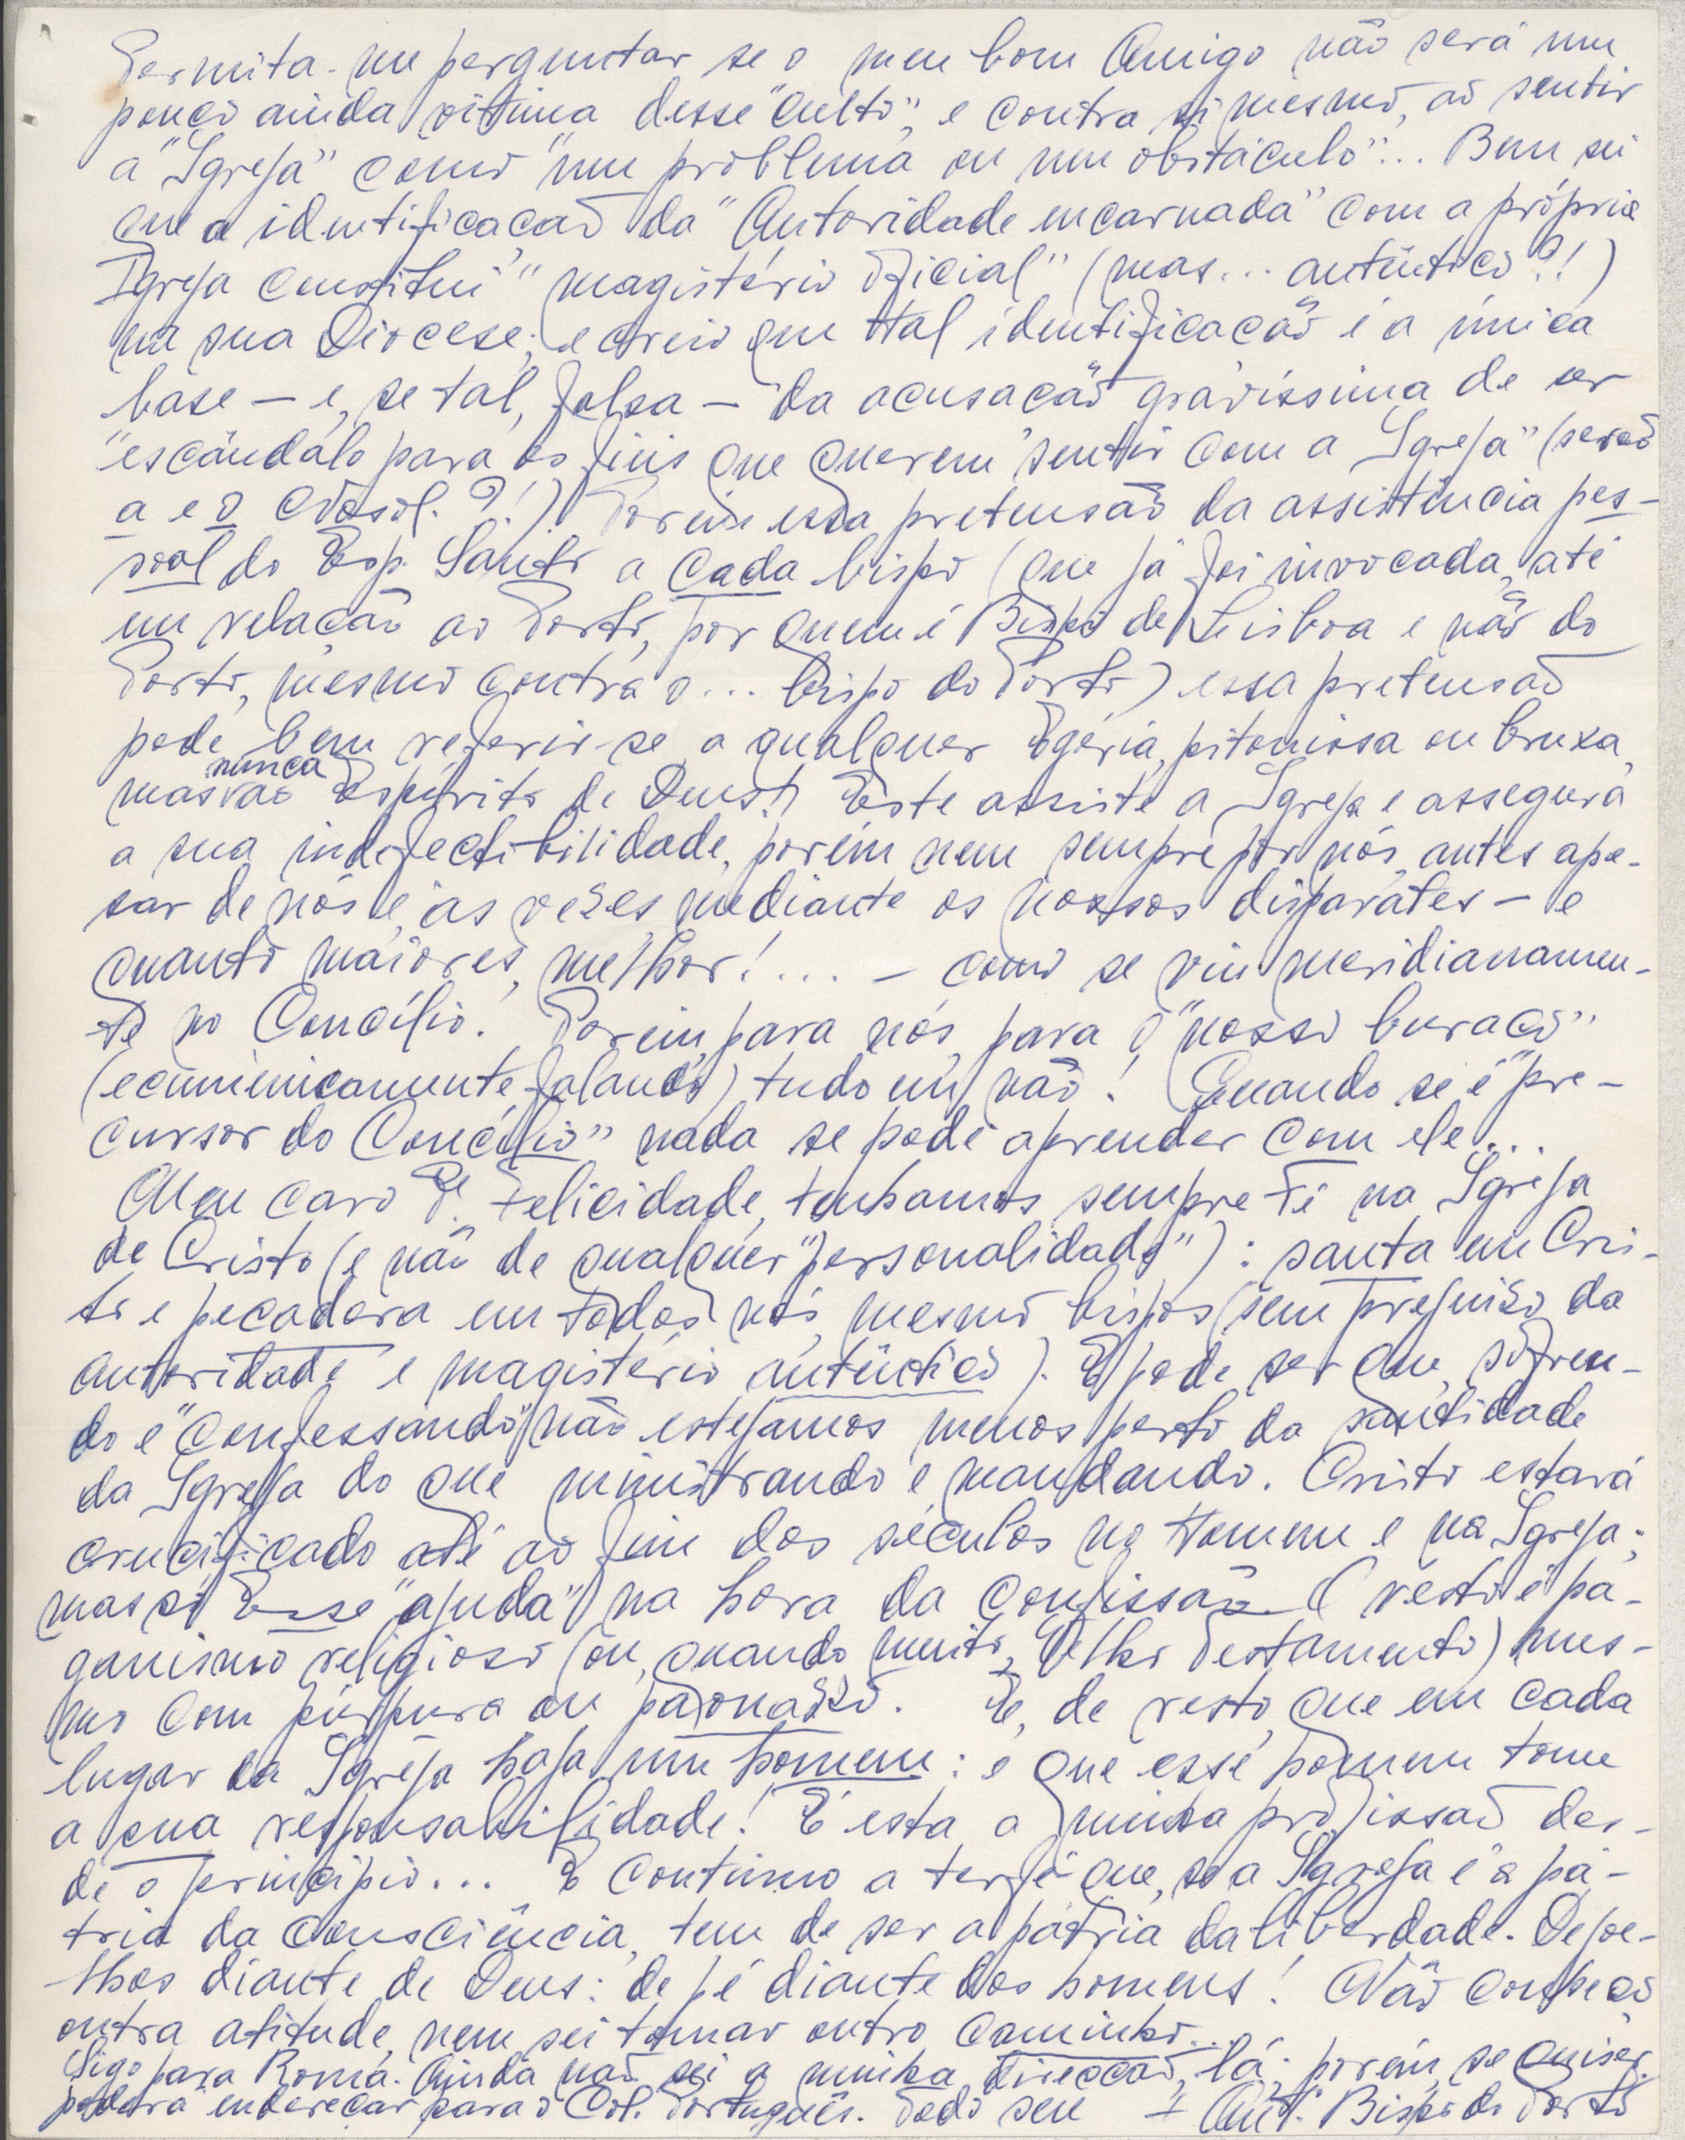 Permita-me perguntar se o meu bom Amigo não será um
pouco ainda vítima desse "culto", e contra si mesmo, ao sentir
a "Igreja" como "um problema ou um obstáculo"... Bem sei
que a identificação da "Autoridade encarnada" com a própria
Igreja constitui "magistério oficial" (mas... autêntico?!)
na sua Diocese; e creio que tal identificação é a única
base – e, se tal, falsa – da acusação gravíssima de ser
"escândalo para os fiéis que querem sentir com a Igreja" (serão
a e o ?!). Porém essa pretensão da assistência pes-
soal do Esp. Santo a cada bispo (que já foi invocada, até
em relação ao Porto, por quem é Bispo de Lisboa e não do
Porto, mesmo contra o... bispo do Porto) essa pretensão
pode bem referir-se a qualquer Egéria, pitonisa ou bruxa,
mas nunca ao Espírito de Deus! Este assiste a Igreja e assegura
a sua indefectibilidade, porém nem sempre por nós, antes ape-
sar de nós e, às vezes, mediante os nossos disparates – e
quanto maiores, melhor!... – como se viu meridianamen-
te no Concílio! Porém, para nós, para o "nosso buraco"
(ecumenicamente falando) tudo em vão! Quando se é "pre-
cursor do Concílio" nada se pode aprender com ele...
Meu caro P.e Felicidade, tenhamos sempre Fé na Igreja
de Cristo (e não de qualquer "personalidade"): santa em Cris-
to e pecadora em todos nós, mesmo bispos (sem prejuízo da
autoridade e magistério autêntico). E pode ser que, sofren-
do e "confessando", não estejamos menos perto da santidade
da Igreja do que ministrando e mandando. Cristo estará
crucificado até ao fim dos séculos no Homem e na Igreja;
mas só Esse "ajuda" na hora da confissão. O resto é pa-
ganismo religioso (ou, quando muito, Velho Testamento) mes-
mo com púrpura ou paonazzo. E, de resto, que em cada
lugar da Igreja haja um homem: e que esse homem tome
a sua responsabilidade! É esta a minha profissão des-
de o princípio... E continuo a ter fé que, se a Igreja é a pá-
tria da consciência, tem de ser a pátria da liberdade. De joe-
lhos diante de Deus: de pé diante dos homens! Não conheço
outra atitude, nem sei tomar outro caminho...
Sigo para Roma. Ainda não sei a minha direcção, lá; porém, se quiser,
poderá endereçar para o Col. Português. Todo seu + Ant. Bispo do Porto